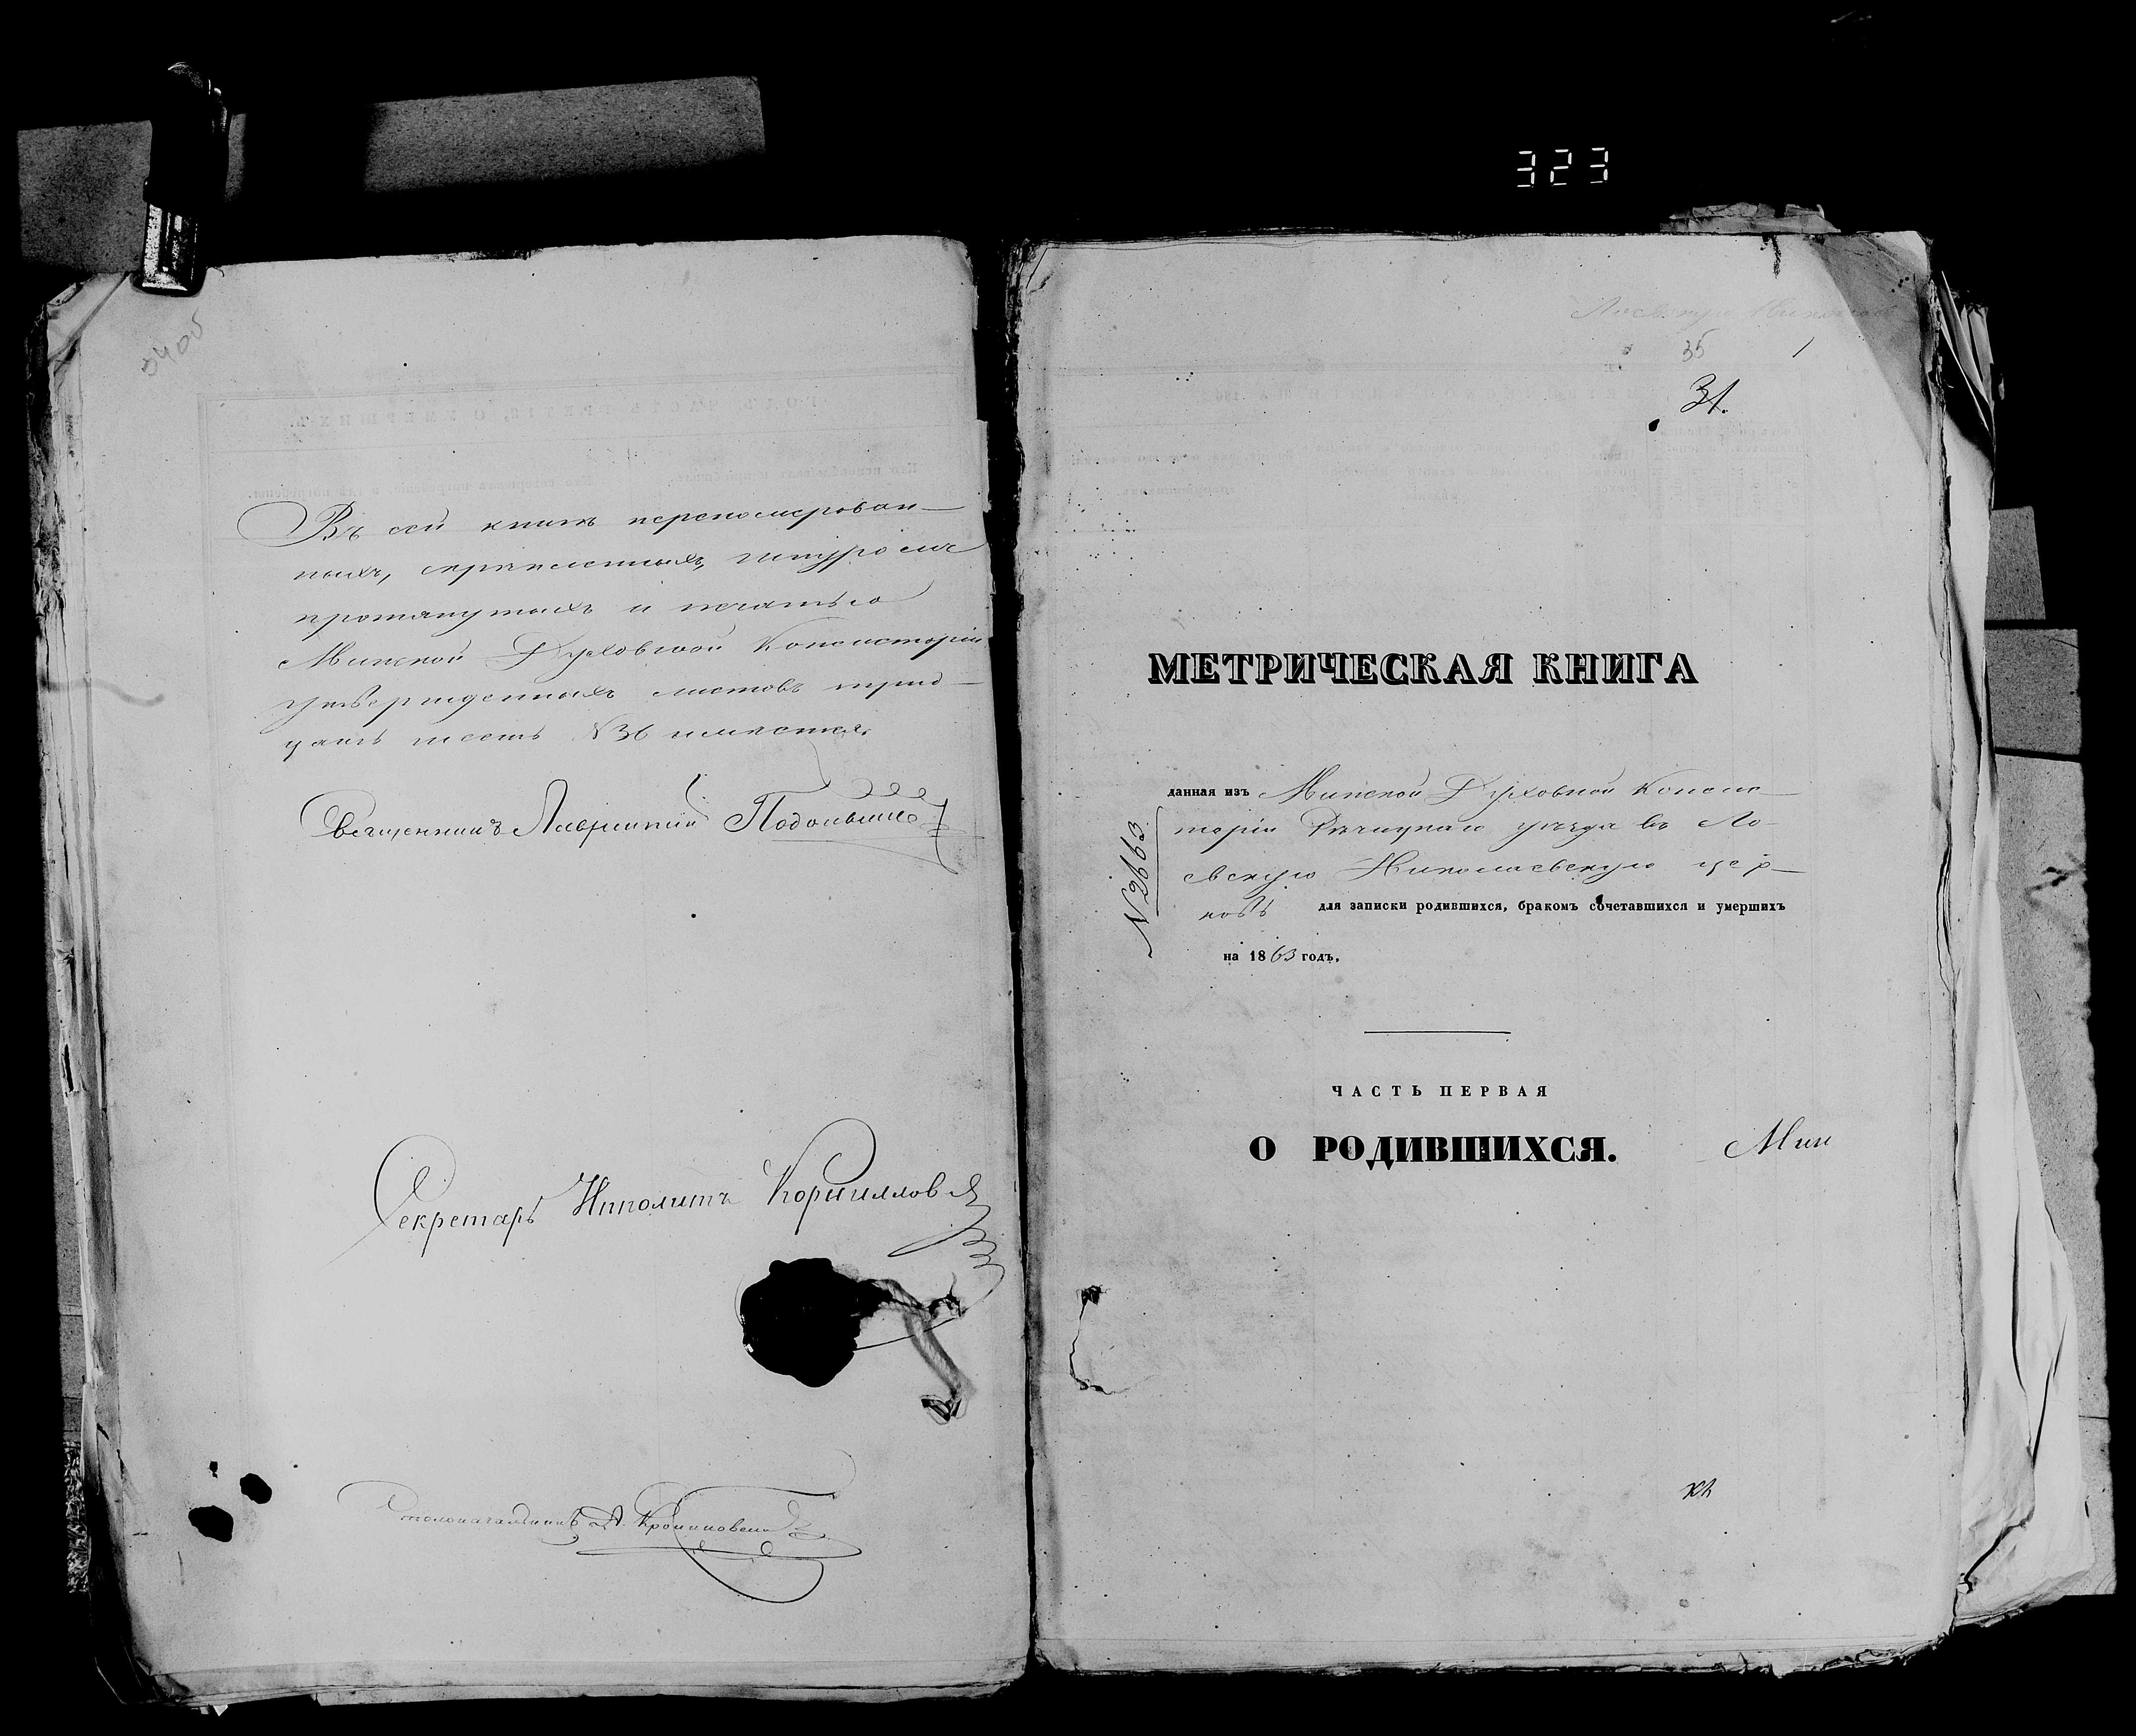 323
Въ сей книгѣ перенумерован-
ныхъ, скрѣпленныхъ, шнуромъ
протянутыхъ и печатью
Минской Духовной Консисторіи
утвержденныхъ листовъ трид-
цать шесть №36 имѣется
Священникъ Лаврентій
Секретарь Ипполитъ Корниловъ
Столоначальникъ А.
35
1
31.
МЕТРИЧЕСКАЯ КНИГА
данная изъ Минской Духовной Консис-
торіи Рѣчицкаго уѣзда въ Ло-
евскую Николаевскую цер-
ковь для записки родившихся, бракомъ сочетавшихся и умершихъ
на 1863 годъ.
№2663
ЧАСТЬ ПЕРВАЯ
О РОДИВШИХСЯ.
Мин